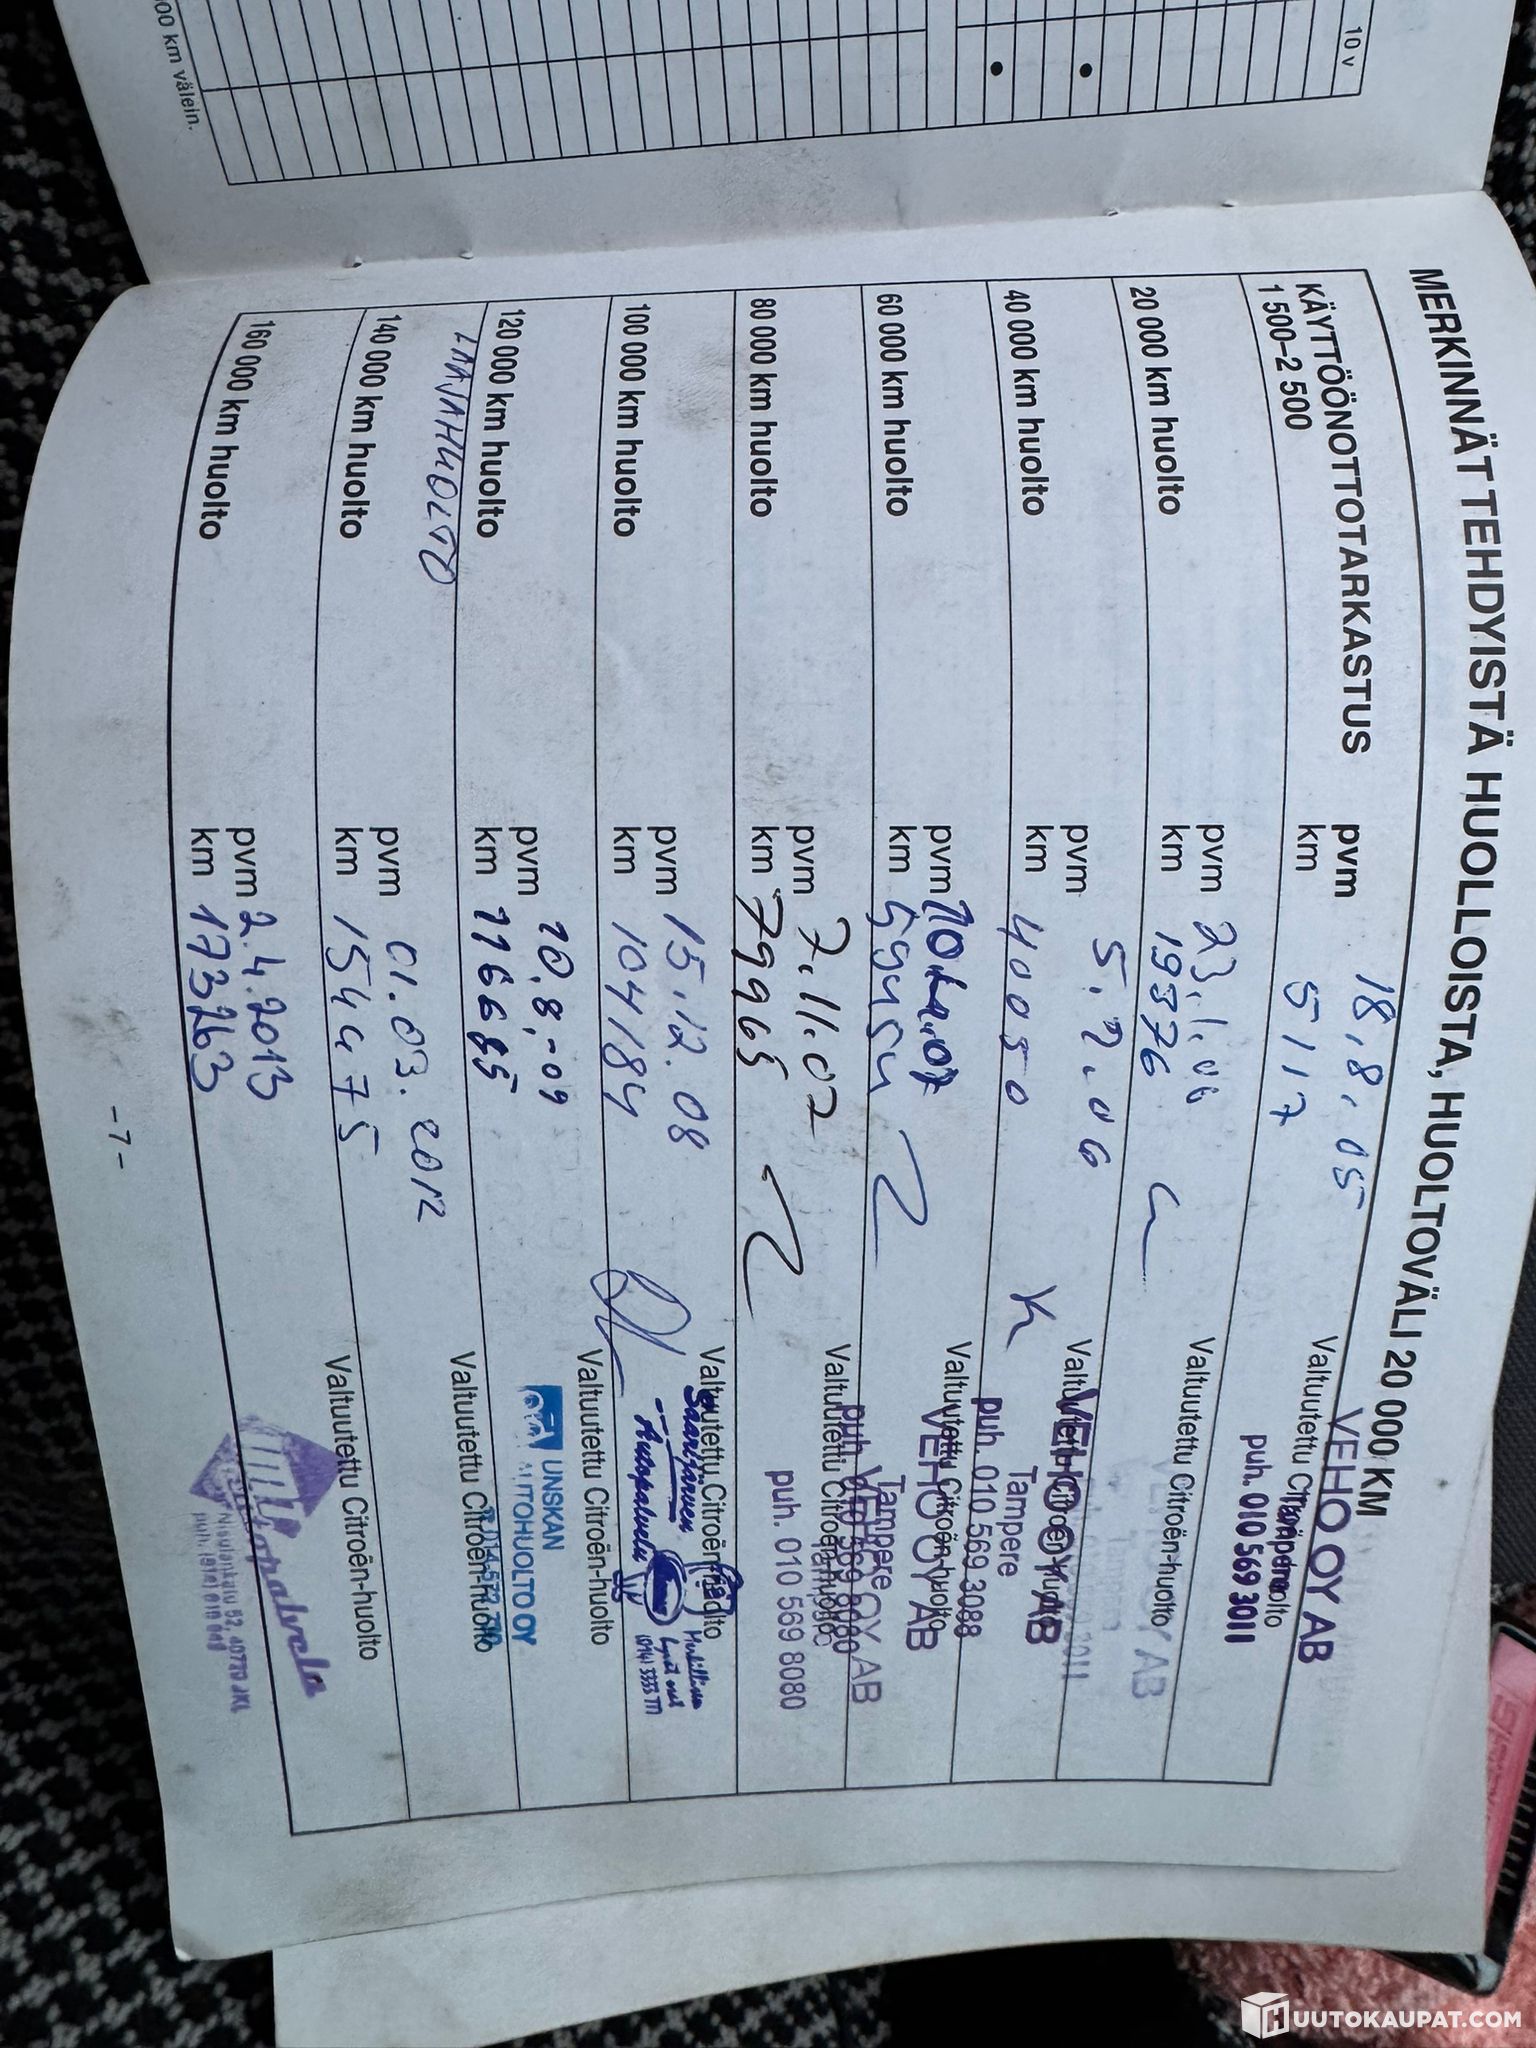 10 v
000 km välein.
MERKINNÄT TEHDYISTÄ HUOLLOISTA, HUOLTOVÄLI 20 000 KM
KÄYTTÖÖNOTTOTARKASTUS
1 500–2 500
pvm 18.8.05
km 5117
VEHO OY AB
Valtuutettu Citroën-huolto
Tampere
puh. 010 569 3011
20 000 km huolto
pvm 23.1.06
km 19376
VEHO OY AB
Valtuutettu Citroën-huolto
Tampere
3011
40 000 km huolto
pvm 5.7.06
km 40050
VEHO OY AB
Valtuutettu Citroën-huolto
Tampere
puh. 010 569 3088
60 000 km huolto
pvm
km
VEHO OY AB
Valtuutettu Citroën-huolto
Tampere
puh. 010 569 8080
80 000 km huolto
pvm 7.11.07
km 79965
VEHO OY AB
Valtuutettu Citroën-huolto
puh. 010 569 8080
100 000 km huolto
pvm 15.12.08
km 104184
Valtuutettu Citroën-huolto
Saarijärven
Autopalvelu
120 000 km huolto
LAAJAHUOLTO
pvm 10.8.-09
km 116685
Valtuutettu Citroën-huolto
UNSKAN
AUTOHUOLTO OY
140 000 km huolto
pvm 01.03.2012
km 154475
Valtuutettu Citroën-huolto
160 000 km huolto
pvm 2.4.2013
km 173263
Valtuutettu Citroën-huolto
- 7 -
HUUTOKAUPAT.COM